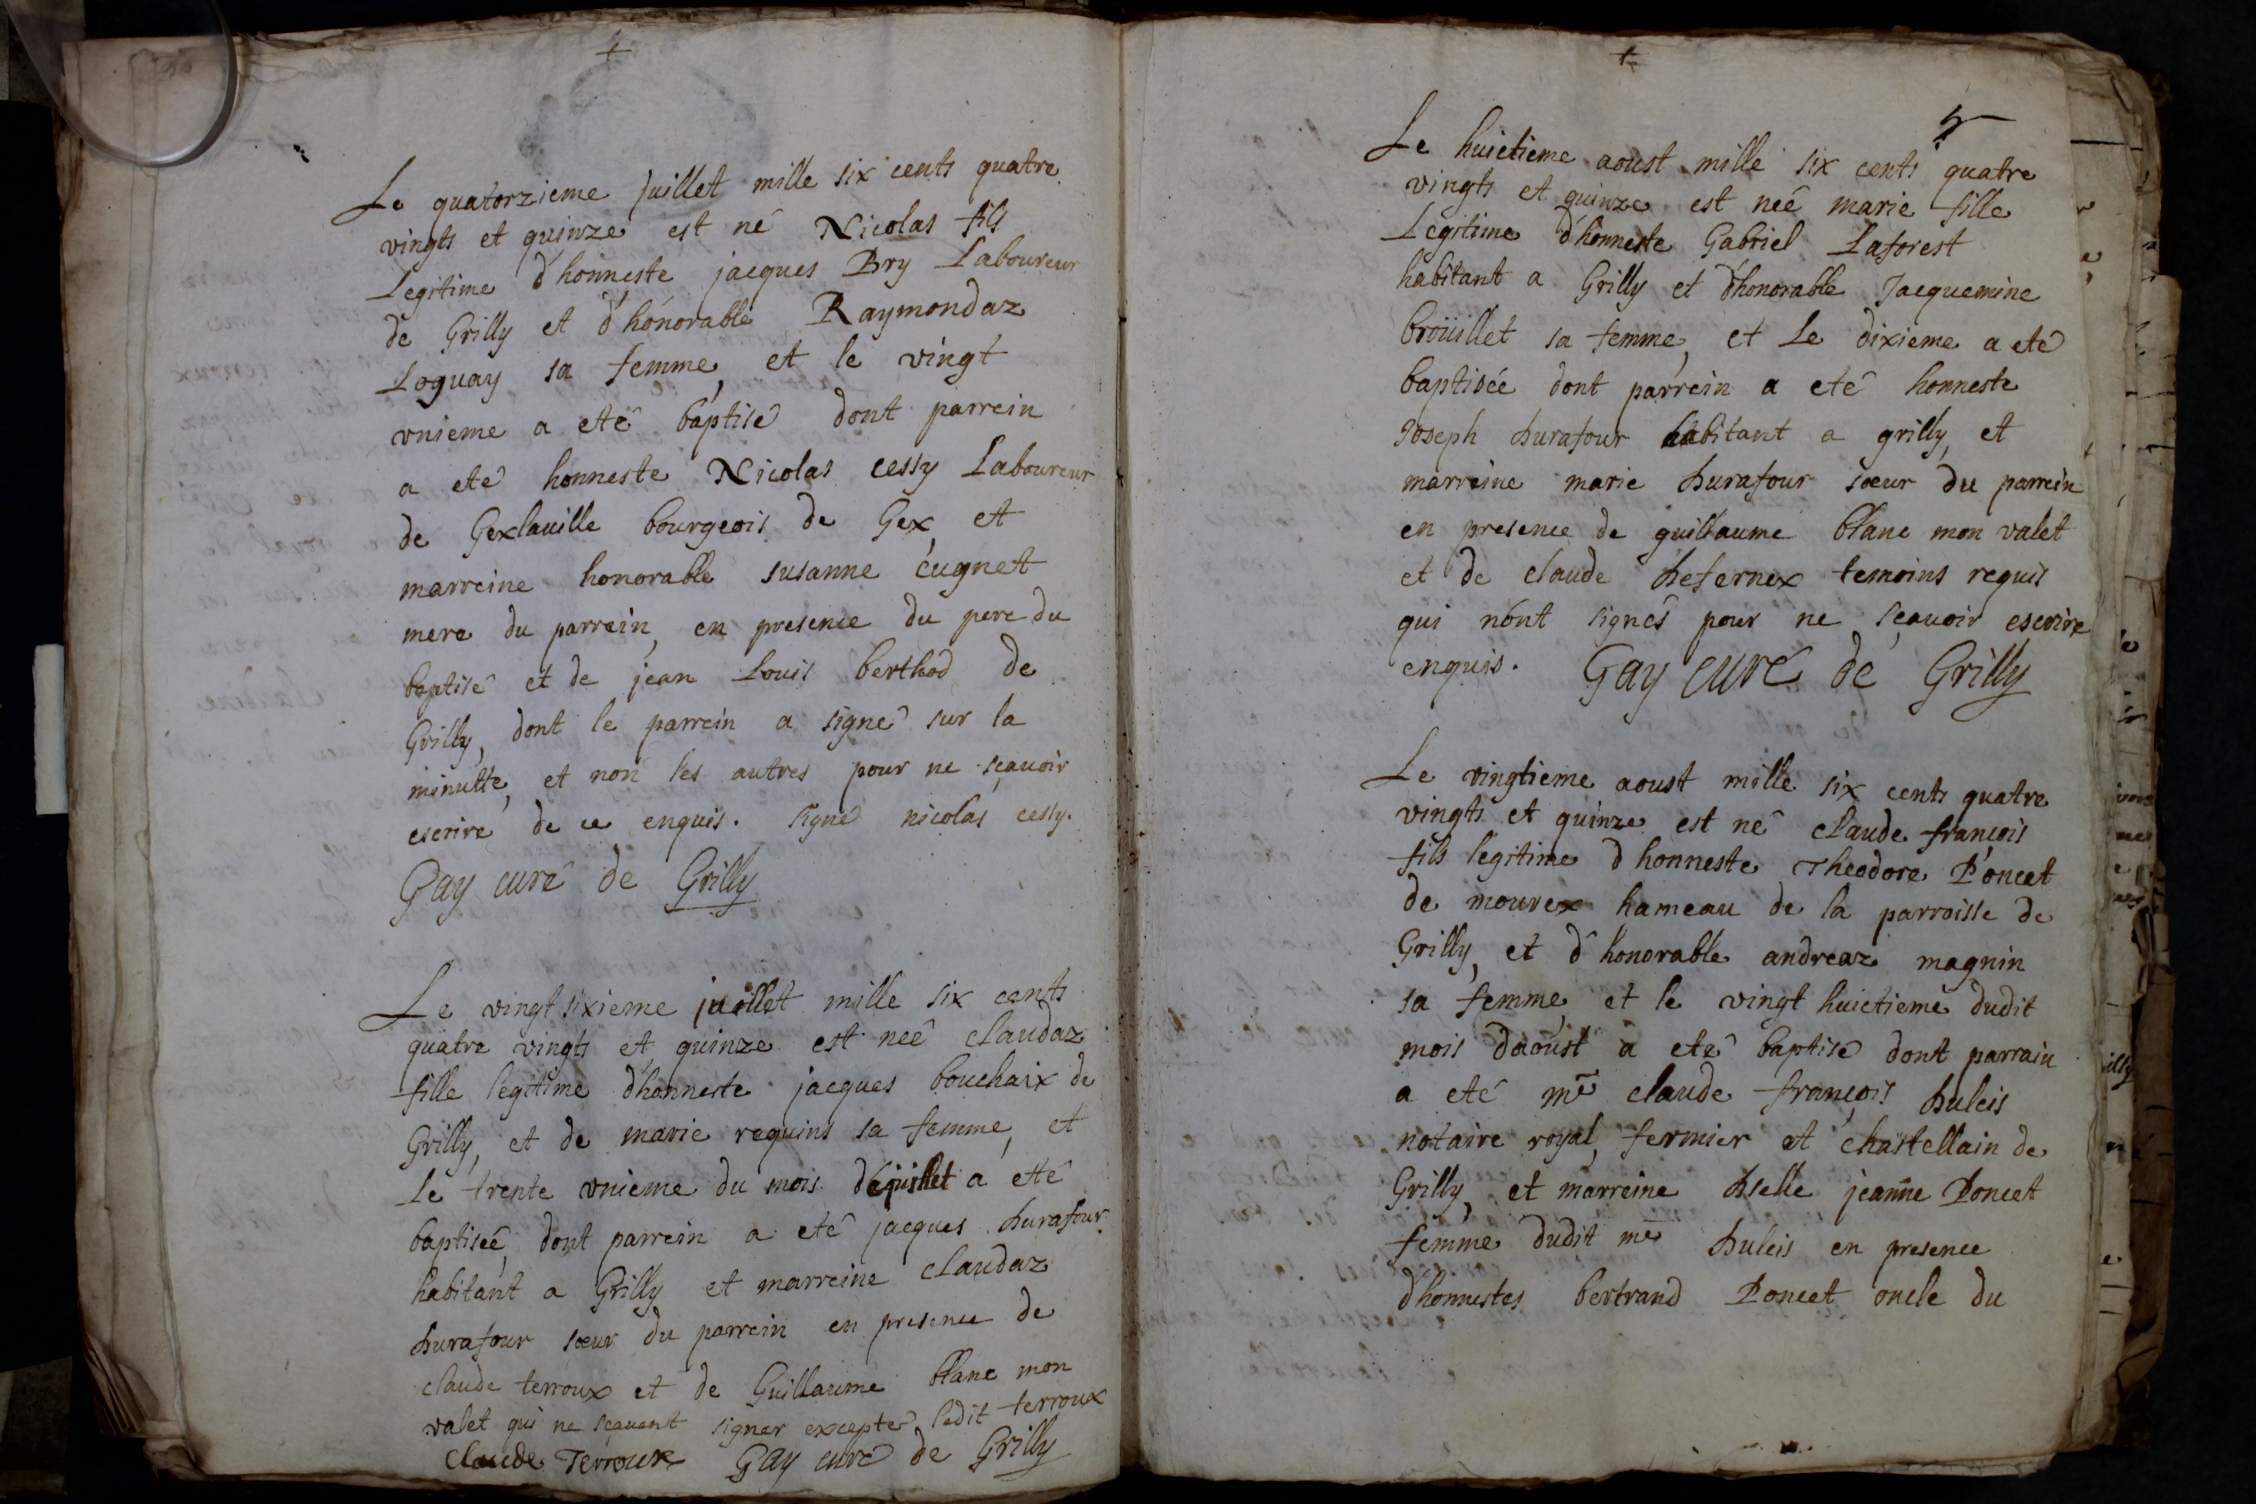 Le quatorzieme juillet mille six cents quatre
vingts et quinze est né Nicolas fils
Legitime d'honneste jacques Bry Laboureur
de Grilly et d'honorable Raymondaz
Loguay sa femme, et le vingt
vnieme a eté baptisé dont parrein
a eté honneste Nicolas cessy Laboureur
de Gexlauille bourgeois de Gex, et
marreine honorable susanne cugnet
mere du parrein, en presence du pere du
baptisé et de jean Louis berthod de
Grilly, dont le parrein a signé sur la
minutte, et non les autres pour ne sçauoir
escrire de ce enquis. signé nicolas cessy.
Gay curé de Grilly
Le vingt sixieme juillet mille six cents
quatre vingts et quinze est neé claudaz
fille legitime d'honneste jacques bouchaix de
Grilly, et de marie requins sa femme, et
Le trente vnieme du mois de juillet a eté
baptiseé, dont parrein a eté jacques durafour
habitant a Grilly et marreine claudaz
durafour sœur du parrein en presence de
claude terroux et de Guillaume blanc mon
valet qui ne sçauent signer excepté ledit terroux
Claude Terroux Gay curé de Grilly
5
Le huictieme aoust mille six cents quatre
vingts et quinze est neé marie fille
Legitime d'honneste Gabriel Laforest
habitant a Grilly et d'honorable Jacquemine
broüillet sa femme, et Le dixieme a eté
baptisée dont parrein a eté honneste
Joseph durafour habitant a grilly, et
marreine marie durafour sœur du parrein
en presence de guillaume blanc mon valet
et de claude defernex temoins requis
qui n'ont signés pour ne sçauoir escrire
enquis. Gay curé de Grilly
Le vingtieme aoust mille six cents quatre
vingts et quinze est né claude françois
fils legitime d'honneste Theodore Poncet
de mourex hameau de la parroisse de
Grilly, et d'honorable andreaz magnin
sa femme, et le vingt huictieme dudit
mois d'aoust a eté baptisé dont parrain
a eté me claude françois duleis
notaire royal, fermier et chastellain de
Grilly, et marreine dlelle jeanne Poncet
femme dudit me duleis en presence
d'honnestes bertrand Poncet oncle du